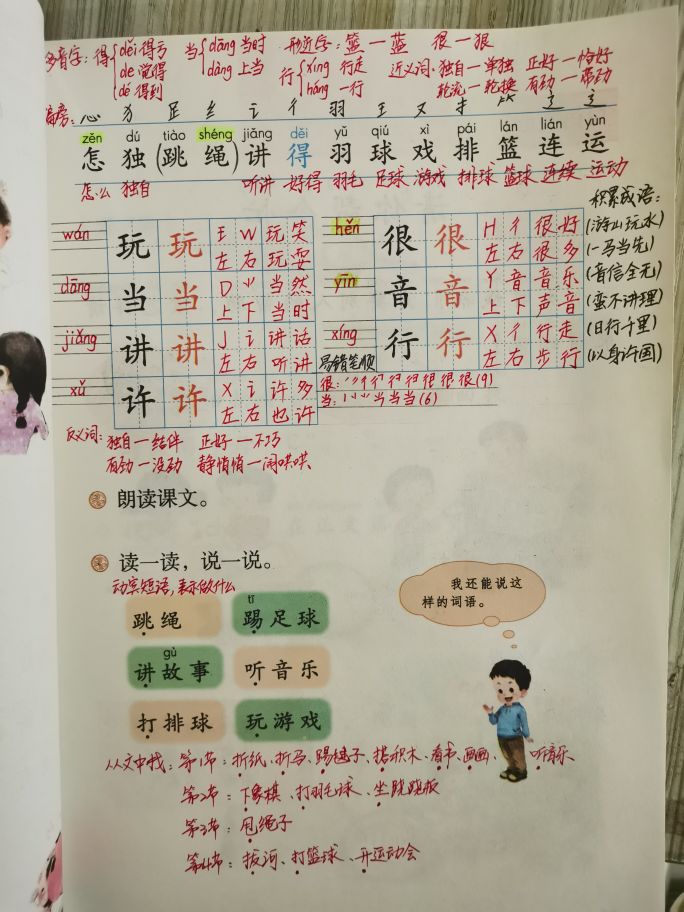 多音字：得 děi 得亏 当 dāng 当时 形近字：篮—蓝 很—狠
de 觉得 dàng 上当 行 xíng 行走 近义词：独自—单独 正好—恰好
dé 得到 háng 一行 轮流—轮换 有劲—带劲
偏旁：心 犭 𧾷 纟 讠 彳 羽 王 又 扌 ⺮ 辶 辶
zěn dú tiào shéng jiǎng děi yǔ qiú xì pái lán lián yùn
怎 独 (跳 绳) 讲 得 羽 球 戏 排 篮 连 运
怎么 独自 听讲 好得 羽毛 足球 游戏 排球 篮球 连续 运动
积累成语：
wán 玩 玩 王 W 玩笑 hěn 很 很 H 彳 很好 (游山玩水)
左右 玩耍 左右 很多 (一马当先)
dāng 当 当 D ⺌ 当然 yīn 音 音 Y 音 音乐 (音信全无)
上下 当时 上下 声音 (蛮不讲理)
jiǎng 讲 讲 J 讠 讲话 xíng 行 行 X 彳 行走 (日行千里)
左右 听讲 左右 步行 (以身许国)
易错笔顺
xǔ 许 许 X 讠 许多 很：很(9)
左右 也许 当：当(6)
反义词：独自—结伴 正好—不巧
有劲—没劲 静悄悄—闹哄哄
朗读课文。
读一读，说一说。
动宾短语，表示做什么
我还能说这
样的词语。
tī
跳绳 踢足球
gù
讲故事 听音乐
打排球 玩游戏
从文中找：第1节：折纸、折马、踢毽子、搭积木、看书、画画、听音乐
第2节：下象棋、打羽毛球、坐跷跷板
第3节：甩绳子
第4节：拔河、打篮球、开运动会